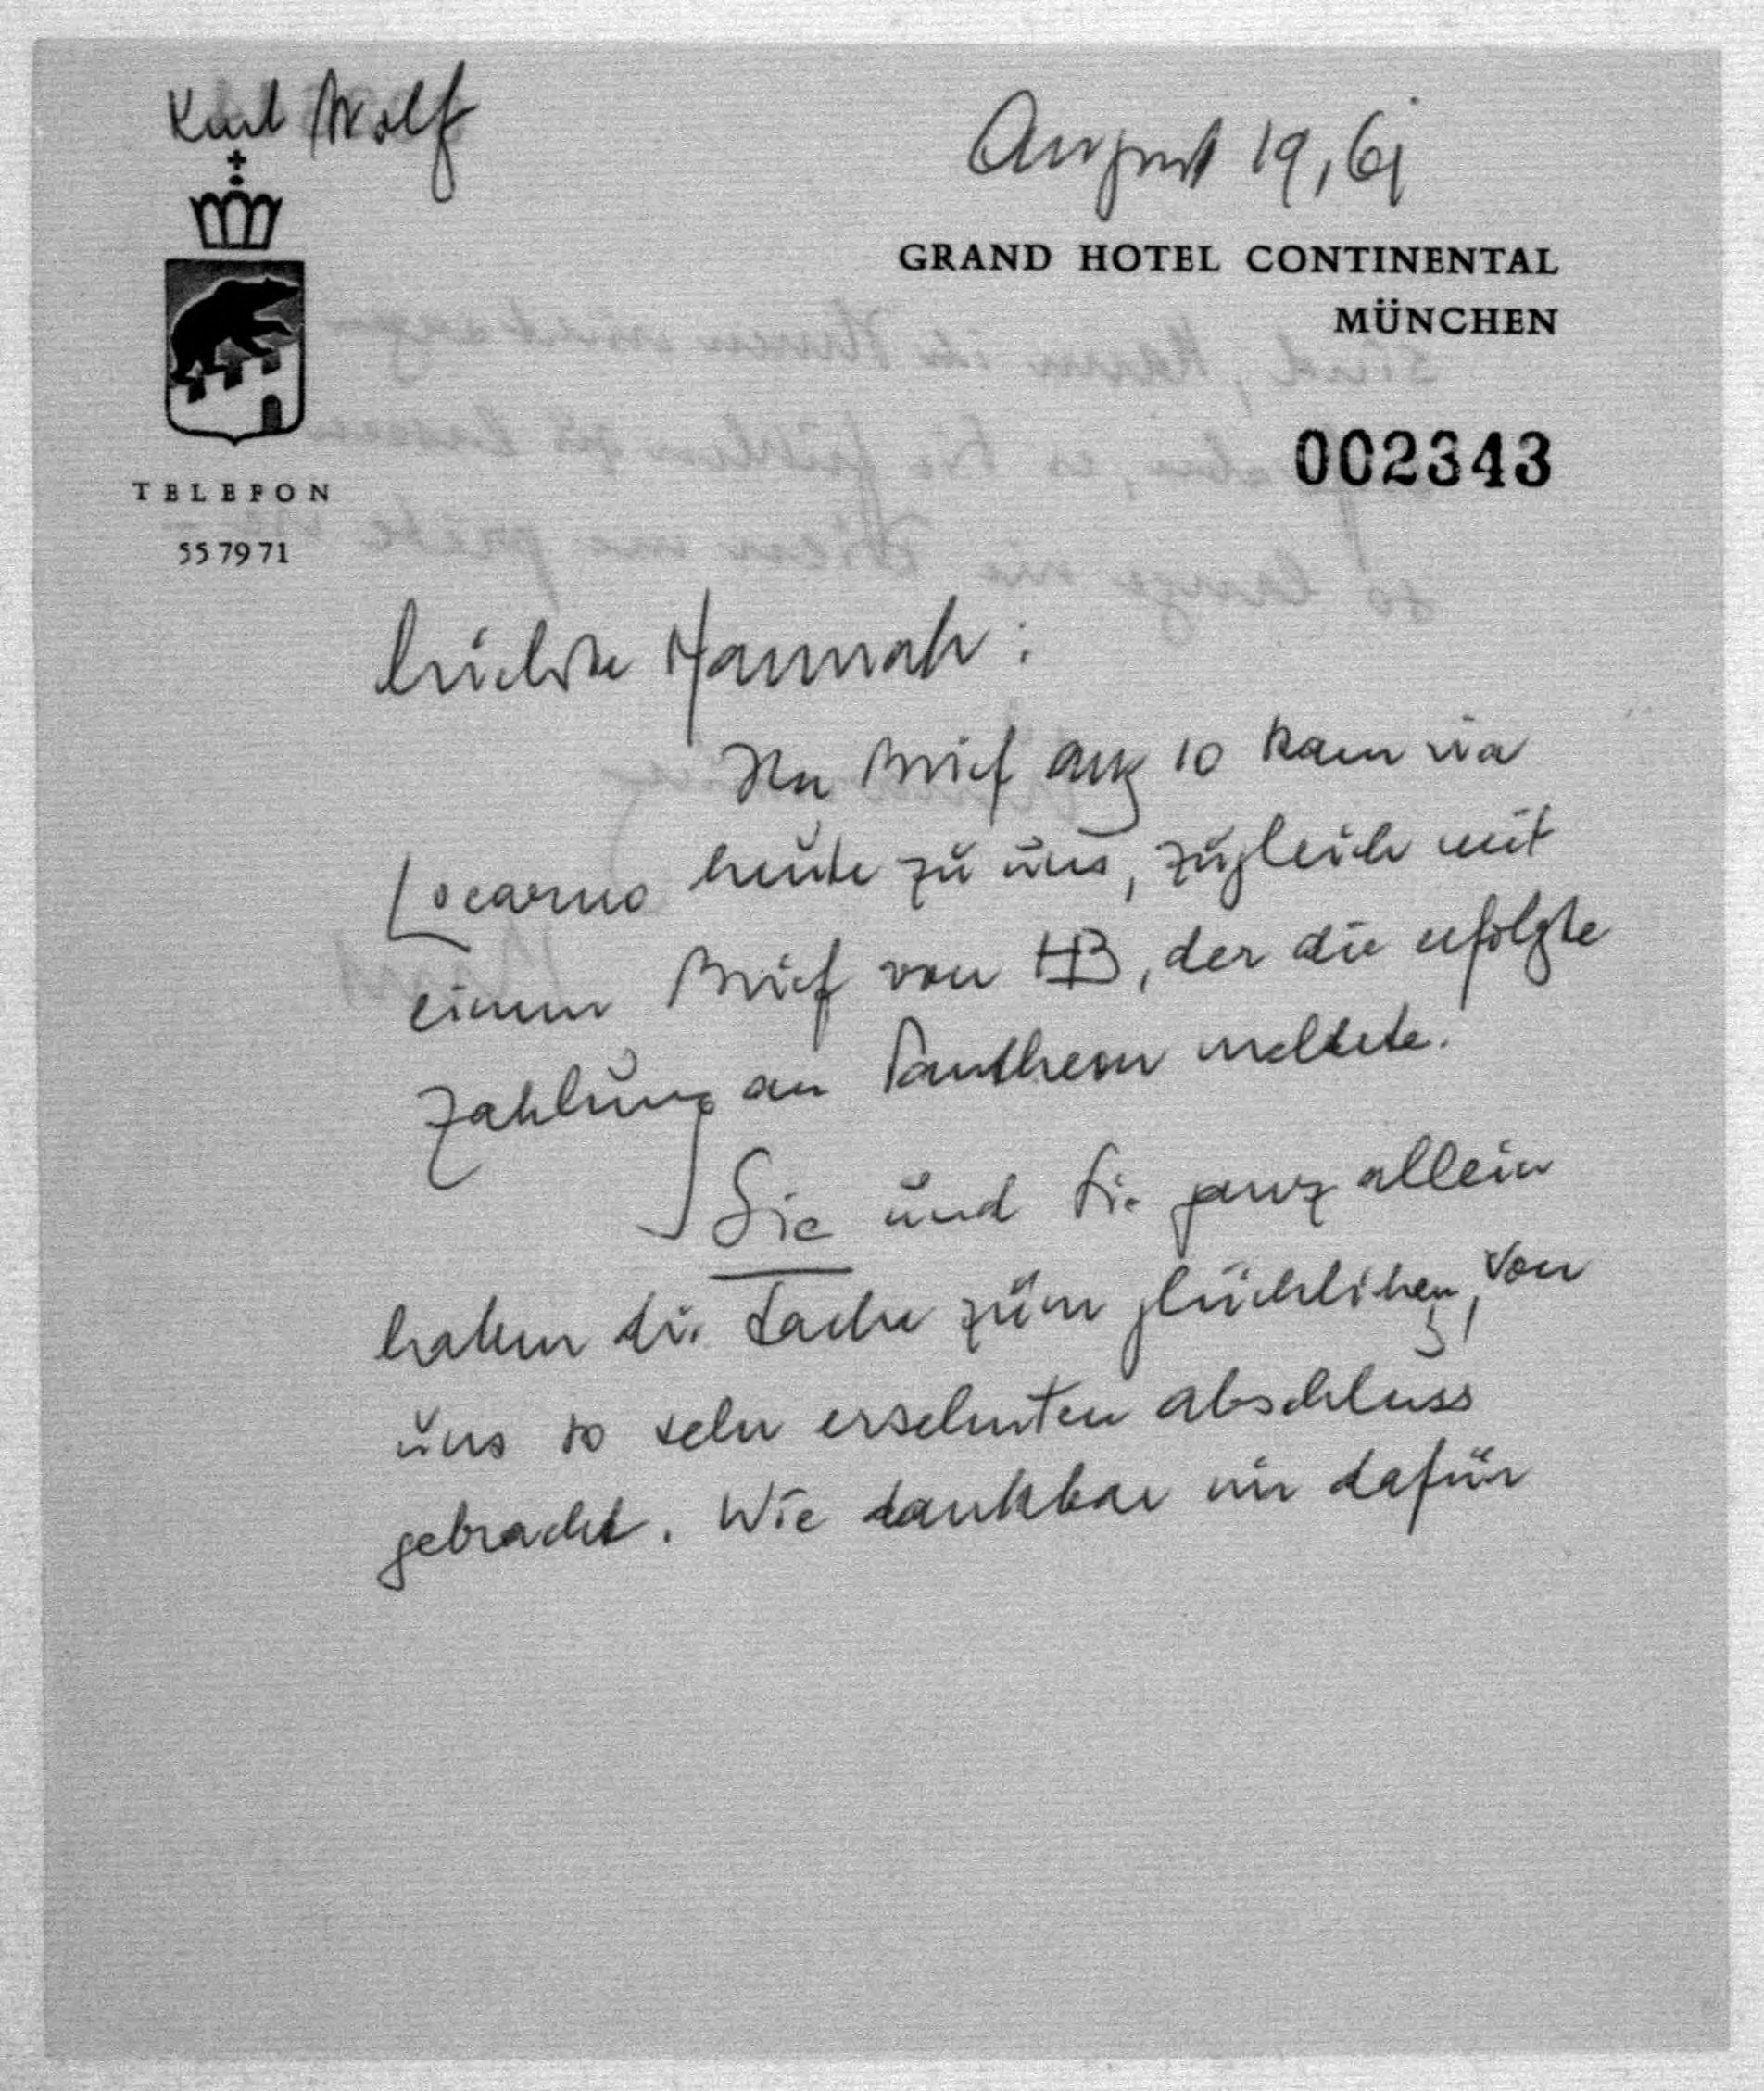 Kurt Wolf
August 19, 61
GRAND HOTEL CONTINENTAL
MÜNCHEN
002343
TELEFON
55 79 71
Liebste Hannah:
Ihr Brief Aug 10 kam via
Locarno heute zu uns, zugleich mit
einem Brief von HB, der die erfolgte
Zahlung an Pantheon meldete.
Sie und Sie ganz allein
haben die Sache zum glücklichen, von
uns so sehr ersehnten Abschluss
gebracht. Wie dankbar wir dafür